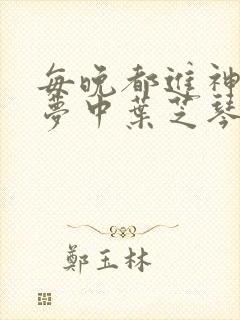 每晚都進神
夢中葉芝琴
鄭玉林